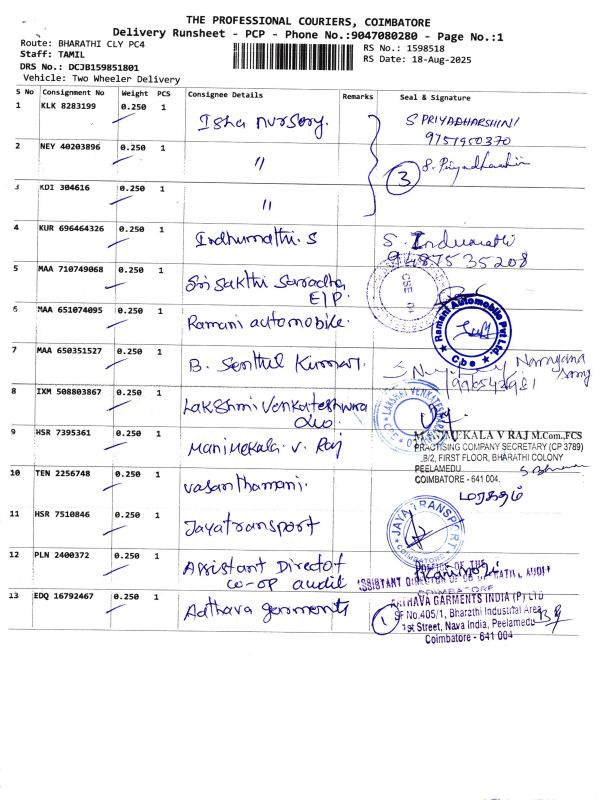 THE PROFESSIONAL COURIERS, COIMBATORE
Delivery Runsheet - PCP - Phone No.:9047080280 - Page No.:1
Route: BHARATHI CLY PC4
RS No.: 1598518
Staff: TAMIL
RS Date: 18-Aug-2025
DRS No.: DCJB159851801
Vehicle: Two Wheeler Delivery
S No Consignment No Weight PCS Consignee Details Remarks Seal & Signature
1 KLK 8283199 0.250 1 Isha nursery. S PRIYADHARSHINI
9751950370
2 NEY 40203896 0.250 1 〃 3 S. Priyadharshini
3 KDI 304616 0.250 1 〃
4 KUR 696464326 0.250 1 Indhumathi. S S. Indumathi
9487535208
5 MAA 710749068 0.250 1 Sri Sakthi Saradha
EIP. CSE
6 MAA 651074095 0.250 1 Ramani automobile. Ramani Automobile Pvt Ltd. ★ Cbe ★
7 MAA 650351527 0.250 1 B. Senthil Kumar. Narayana
Samy
8 IXM 508803867 0.250 1 Lakshmi Venkateshwara
LAKSHMI VENKATESHWARA
9 HSR 7395361 0.250 1 Manimekalai. V. Raj MANIMEKALA V RAJ M.Com.,FCS
PRACTISING COMPANY SECRETARY (CP 3789)
B/2, FIRST FLOOR, BHARATHI COLONY
PEELAMEDU
COIMBATORE - 641 004.
10 TEN 2256748 0.250 1 Vasanthamani. மரகதம்
11 HSR 7510846 0.250 1 Jayatransport JAYA TRANSPORT
COIMBATORE
12 PLN 2400372 0.250 1 Assistant Director
co-op audit OFFICE OF THE
ASSISTANT DIRECTOR OF CO-OPERATIVE AUDIT
COIMBATORE
13 EDQ 16792467 0.250 1 Adhava garments 1 ADHAVA GARMENTS INDIA (P) LTD
SF No.405/1, Bharathi Industrial Area
1st Street, Nava India, Peelamedu
Coimbatore - 641 004